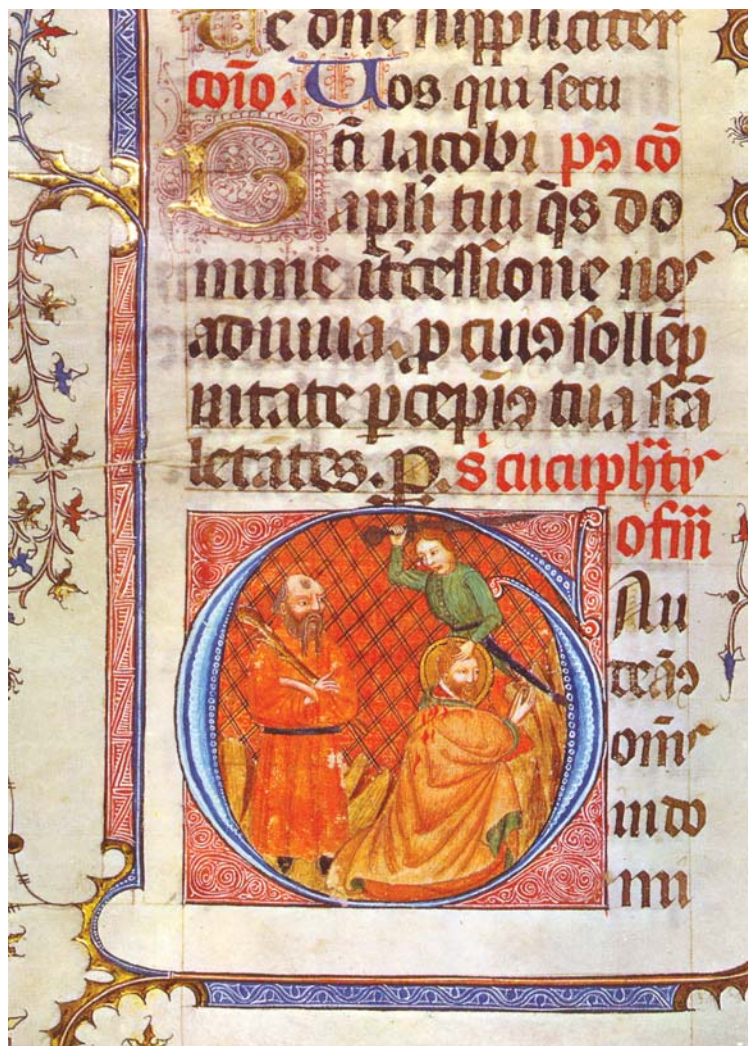 Te dne suppliciter
coıo. Uos qui secu
B ti iacobi pꝯ cō
apli tui q̄s do
mine it̉cessione nos
adiuua. ꝓ cuiꝯ sollēp
nitate ꝑcepiꝯ tua scā
letates. P. s̉ cucuphtis
ofm̄
Gau
deaꝯ
om̄s
in do
mi